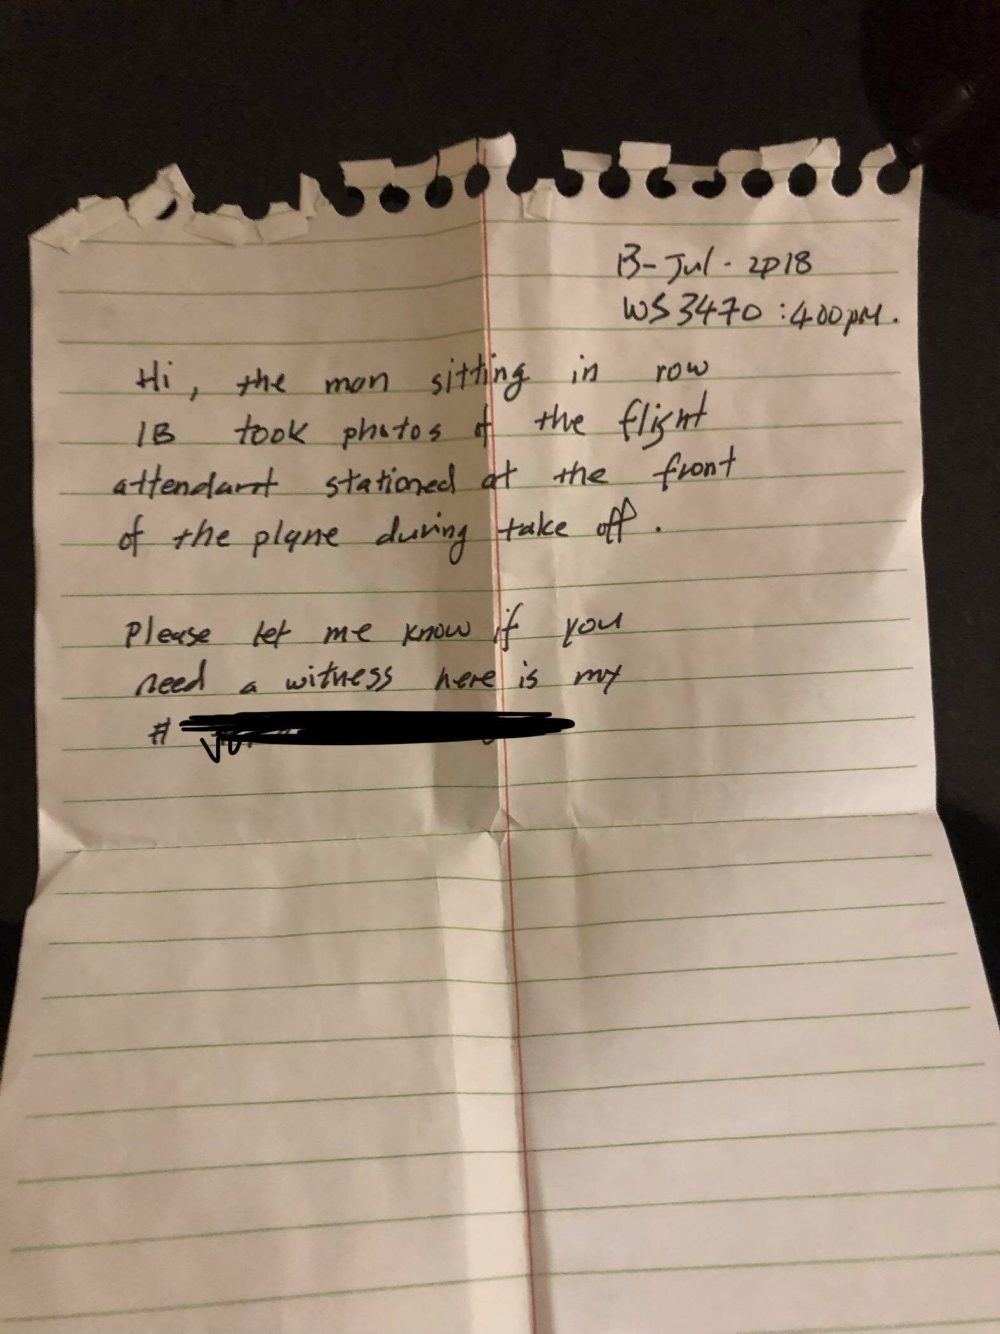 13-Jul-2018
WS3470 :400pM.
Hi, the man sitting in row
1B took photos of the flight
attendant stationed at the front
of the plane during take off.
Please let me know if you
need a witness here is my
#